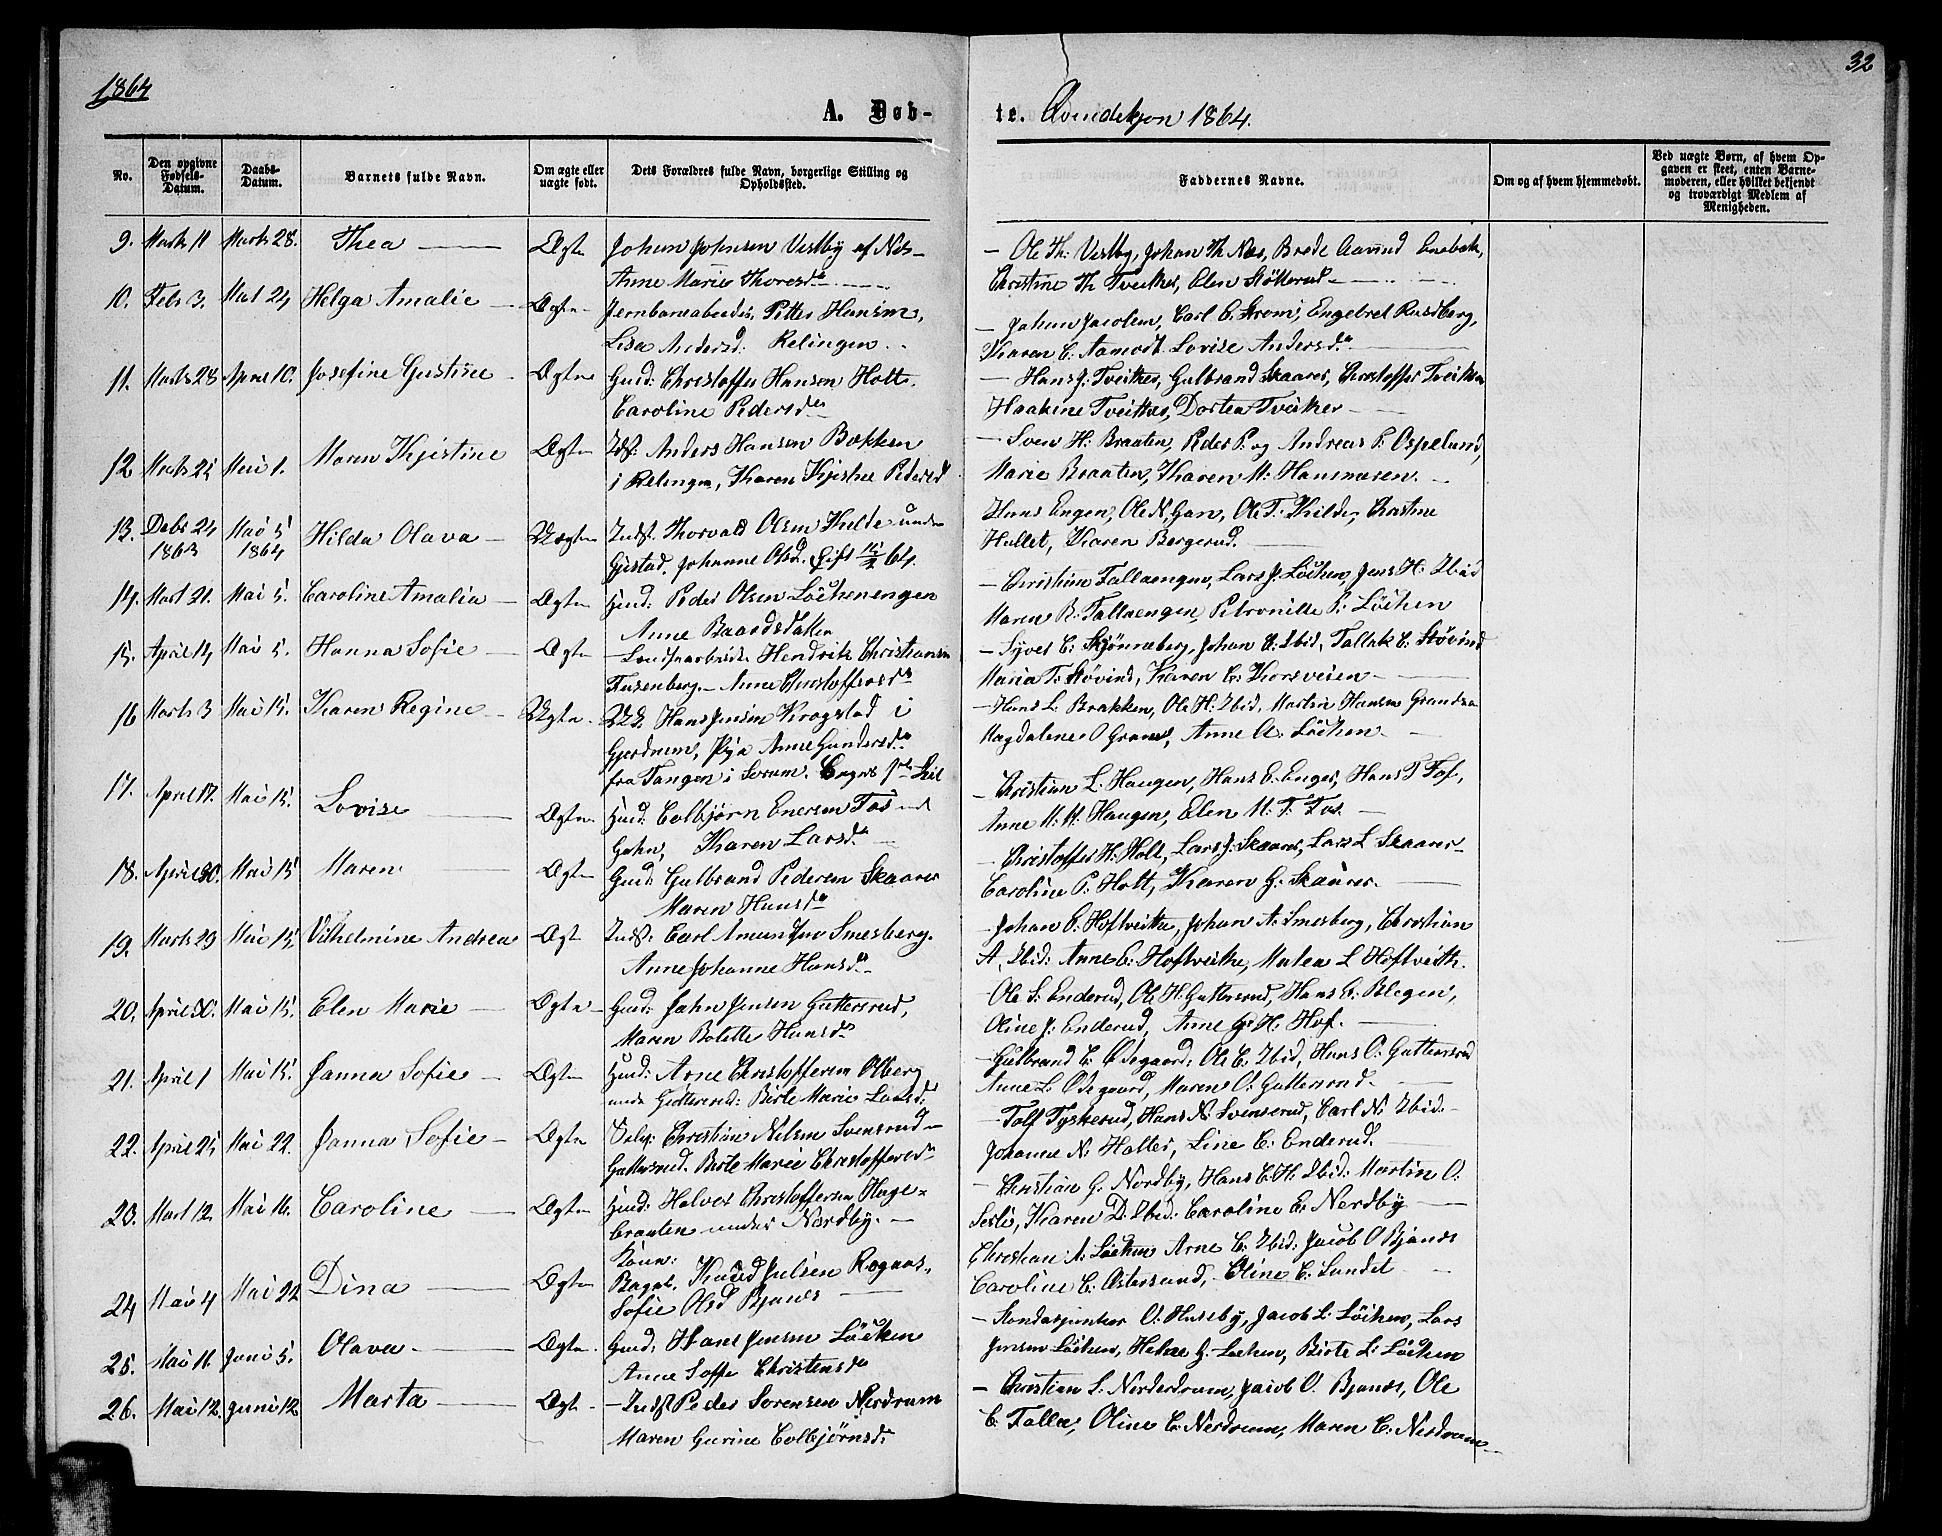 1864
32
A. Døb-
te. Qvindekjøn 1864.
No.
Den opgivne Fødsels-Datum.
Daabs-Datum.
Barnets fulde Navn.
Om ægte eller uægte født.
Dets Forældres fulde Navn, borgerlige Stilling og Opholdssted.
Faddernes Navne.
Om og af hvem hjemmedøbt.
Ved uægte Børn, af hvem Op-
gaven er skeet, enten Barne-
moderen, eller hvilket bekjendt
og troværdigt Medlem af
Menigheden.
9. Marts 11 Marts 28. Thea Ægte Johan Johnsen Vestby af Næs
Anne Marie Thoresd.
Ole Th. Vestby, Johan Th. Næs, Brede Aamud
Christine Th. Tveiter, Elen Støtterud
10. Feb. 3. Helga Amalie Ægte Jernbanearbeider Petter Hansen,
Lisa Andersd. Relingen
Johan Jacobsen, Carl E. Strom, Engebret Rusdberg,
Karen E. Aamodt Lovise Andersd.
11. Marts 28 April 10. Josefine Gustine Ægte Gmd. Christoffer Hansen Holt
Caroline Pedersd.
Hans J. Tveitter, Gulbrand Skaarer, Christoffer Tveitter
Haakine Tveitter, Dortea Tveiter
12 Marts 25 Mai 1. Maren Kjistine Ægte Indst. Anders Hansen Bækken
i Relingen, Karen Kjistine Pedersd
Sven H. Braaten, Peder P. og Andreas P. Ospelund,
Marie Braaten, Karen M. Hansmaren.
13. Debr 24 1863 Mai 5 1864 Hilda Olava Uægte Indst. Thorvald Olsen Kilde under
Gjestad. Johanne Olsd. Gift 64.
Hans Engen, Ole N. Gan, Ole T. Kilde, Christine
Hullet, Karen Bergerud.
14. Mart 21. Mai 5. Caroline Amalia Ægte Gmd. Peder Olsen Løchenengen
Anne Baardsdatter
Christian Tallaengen, Lars J. Løchen, Jens H. Ibid
Maren R. Tallaengen, Petronille P. Løchen
15. April 14 Mai 5. Hanna Sofie Ægte Hendrik Christiansen
Fusenberg. Anne Christoffersd.
Syver E. Skjønneberg, Johan A. Ibid, Tallak C. Støvind
Maria T. Støvind, Karen C. Korsveien
16 Marts 3 Mai 15. Karen Regine Uægte Hans Jensen Krogstad i
Gjerdrum, Pige Anne Gundersd.
fra Tangen i Sørum.
Hans L. Brakken, Ole H. Ibid, Martin Hansen
Magdalene O Grans, Anne A. Løchen
17. April 17. Mai 15. Lovise Ægte Gmd. Colbjørn Enersen Fos
Gahn, Karen Larsd.
Christian L. Haugen, Hans E. Enger, Hans T. Fos,
Anne M. M. Haugen, Elen M. T. Fos.
18. April 30. Mai 15 Maren Ægte Gmd. Gulbrand Pedersen Skaarer
Maren Hansd.
Christoffer H. Holt, Lars J. Skaarer, Lars L. Skaarer
Caroline P. Holt, Karen G. Skaarer.
19. Marts 29 Mai 15 Vilhelmine Andrea Ægte Indst. Carl Amundsen Smesberg.
Anne Johanne Hansd.
Johan E. Hoftveitte, Johan A. Smesberg, Christian
A. Ibid. Anne E. Hoftveitte, Malea L. Hoftveitt.
20. April 30. Mai 15. Elen Marie Ægte Gmd. John Jensen Guttersrud,
Maren Bolette Hansd.
Ole S. Enderud, Ole H. Guttersrud, Hans E. Blegen,
Oline J. Enderud, Anne G. H. Hof.
21. April 1 Mai 15. Janna Sofie Ægte Gmd. Arne Christoffersen Olberg
under Guttersrud: Birte Marie Larsd.
Gulbrand C. Ødegaard, Ole E. Ibid, Hans O. Guttersrud
Anne L. Ødegaard, Maren O. Guttersrud.
22. April 25 Mai 22. Janna Sofie Ægte Christian Nilsen Svensrud
Guttersrud. Birte Marie Christoffersd.
Tolf Tyskerud, Hans N. Svenserud, Carl N. Ibid.
Johanne N. Halter, Line E. Enderud.
23. Mart 12 Mai 16. Caroline Ægte Gmd. Halvor Christoffersen Hage-
braaten under Nordby.
Christian G. Nordby, Hans C. H. Ibid. Martin O.
Karen D. Ibid. Caroline E. Nordby
24 Mai 4 Mai 22 Dina Ægte Knud Julsen Rognos,
Sofie Olsd Bjanes
Christian A. Løchen Arne C. Ibid. Jacob O Bjanes
Caroline C. Østersund, Eline E. Sundet
25. Mai 11. Juni 5. Olava Ægte Gmd. Hans Jensen Løchen
Anne Soffe Christensd.
O. Huseby, Jacob L. Løchen, Lars
Jensen Løchen, Helene G. Løchen, Birte L. Løchen
26. Mai 12. Juni 12 Marta Ægte Indst Peder Sørensen Nerdrum
Maren Gurine Colbjørnsd.
Christian S. Nerderdrum, Jacob O. Bjanes, Ole
C. Talla, Oline C. Nerdrum, Maren C. Nerdrum